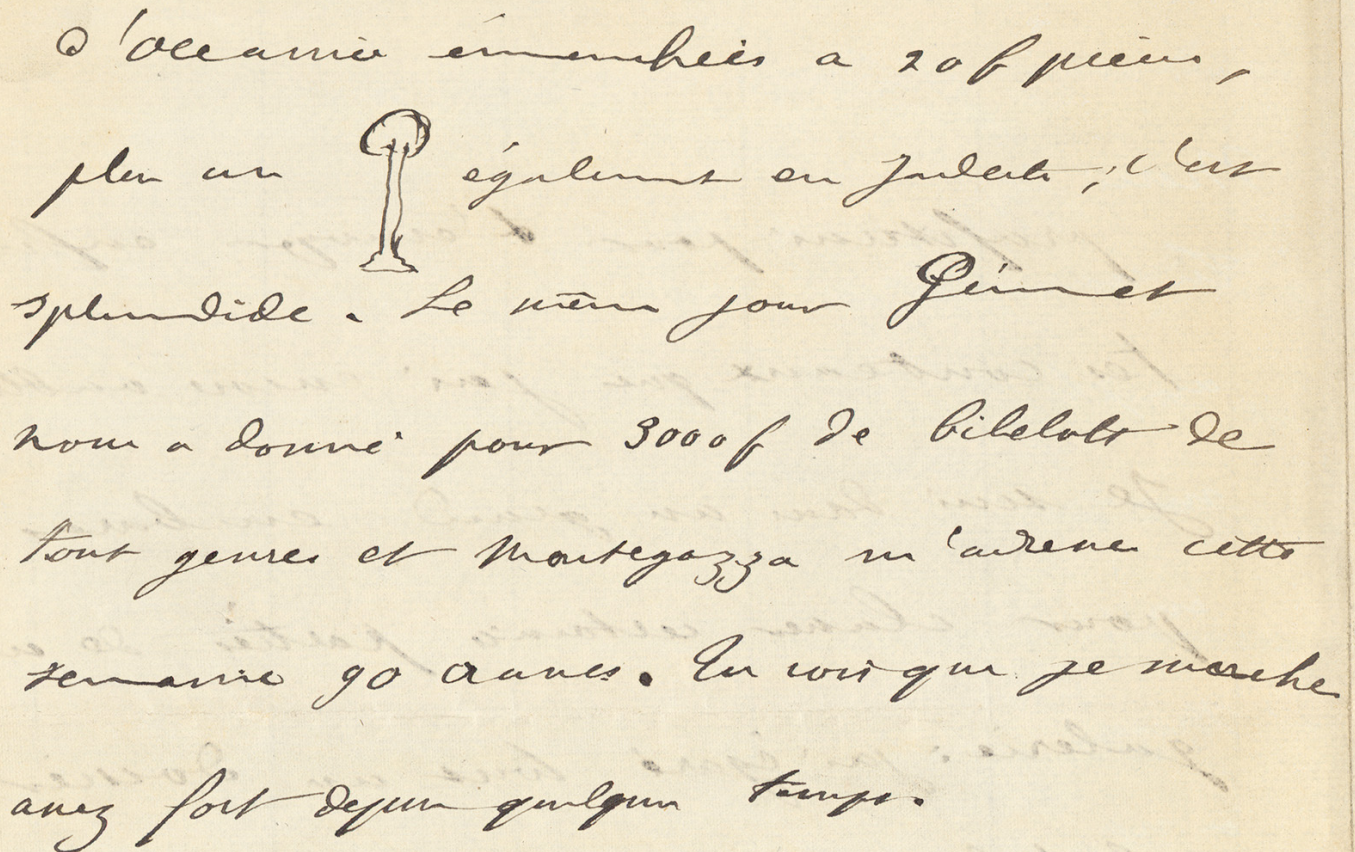 d'océanie émmanchées a 20f pièce,
plus un également en jadeite, c'est
splendide. Le même jour Guimet
nous a donné pour 3000f de bibelots de
tout genres et Montegazza m'adresse cette
semaine 90 cranes. Tu vois que je marche
assez fort depuis quelque temps.